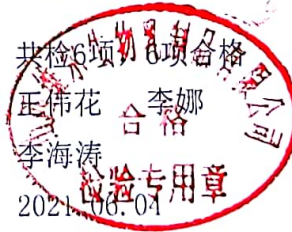 共检6项，6项合格
王伟花 李娜
李海涛
2021.06.04
合格
检验专用章